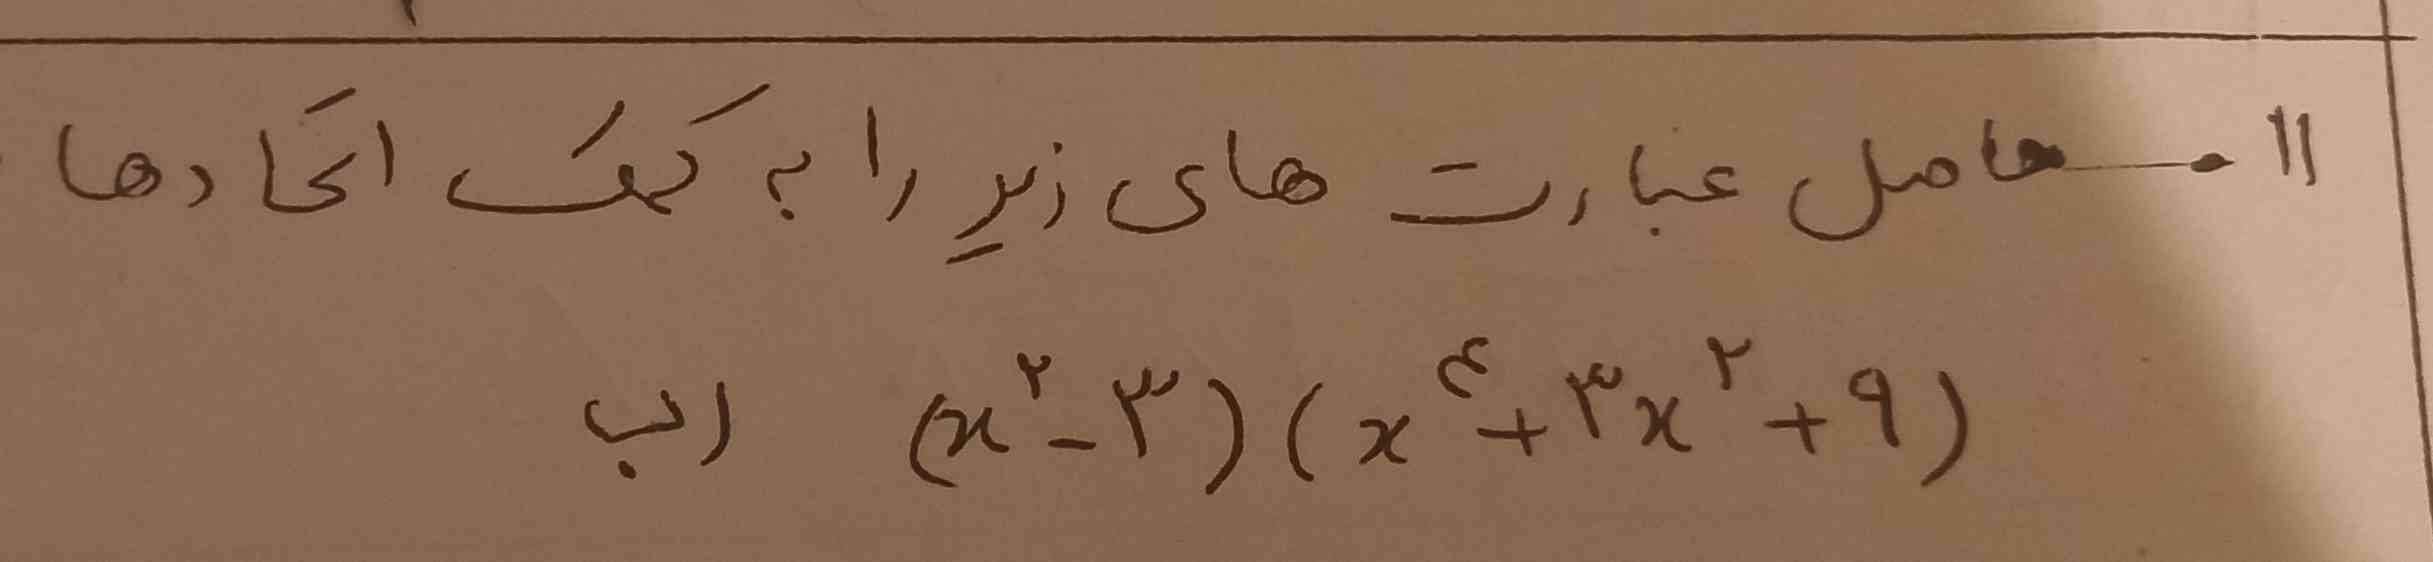 ۱۱- حاصل عبارت های زیر را به کمک اتحادها
ب) (x^۲-۳)(x^۴+۳x^۲+۹)